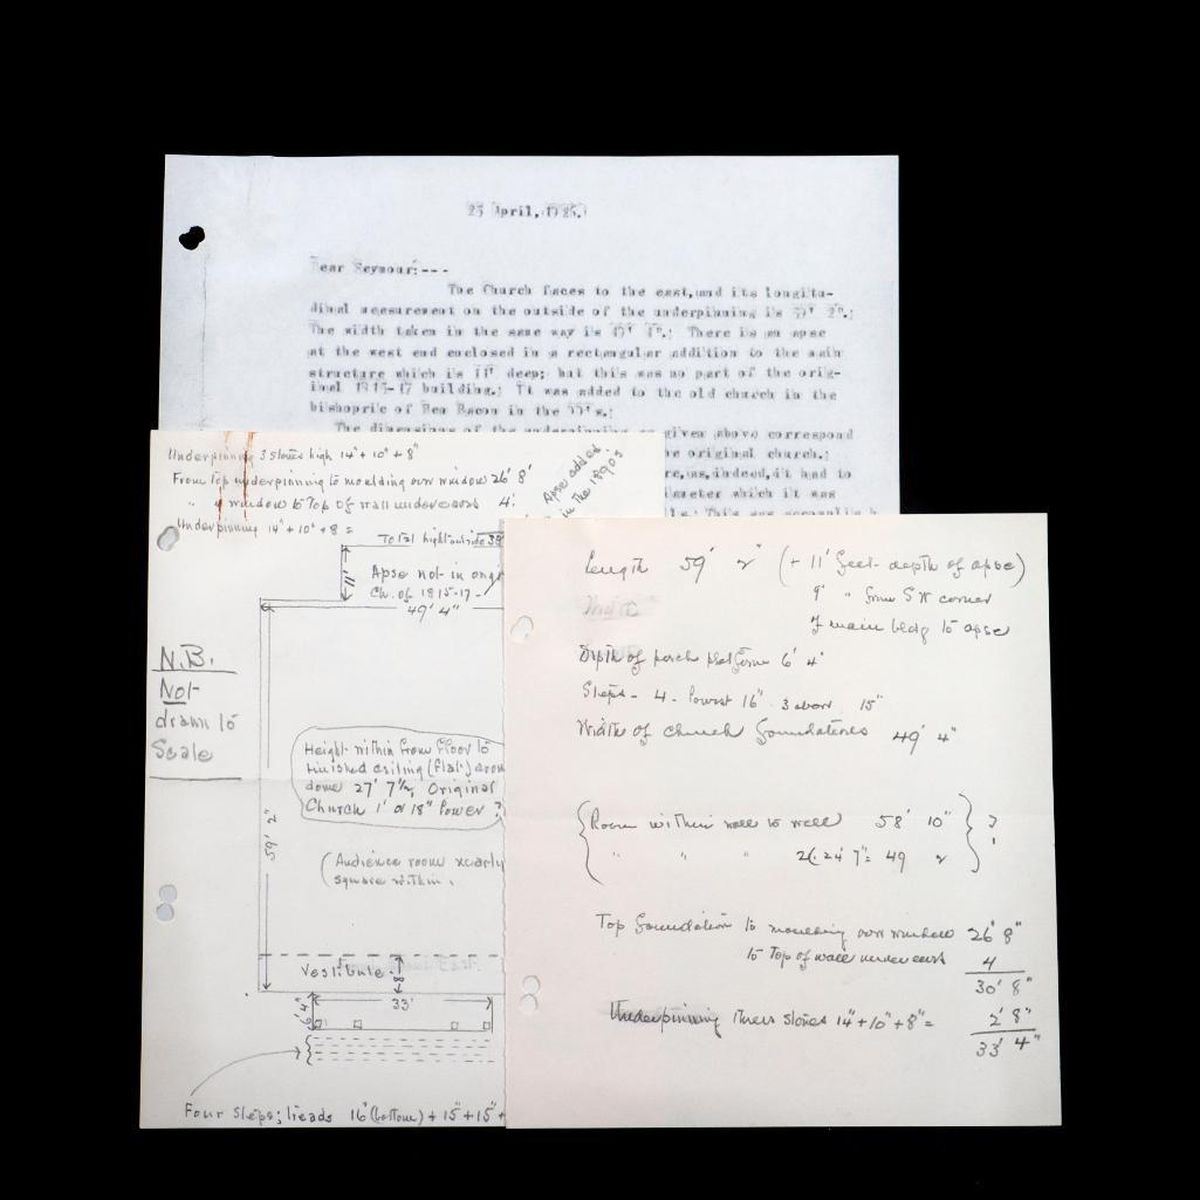 25 April, 1925.
Dear Seymour:---
The Church faces to the east, and its longitu-
dinal measurement on the outside of the underpinning is 59' 2".;
The width taken in the same way is 49' 4".; There is an apse
at the west end enclosed in a rectangular addition to the main
structure which is 11' deep; but this was no part of the orig-
inal 1815-17 building.; It was added to the old church in the
bishopric of Ben Bacon in the
The dimensions of the underpinning given above correspond
original church.;
re, as, indeed, it had to
ameter which it was
This was accomplish
Underpinning 3 stones high 14" + 10" + 8"
From top underpinning to moulding over window 26' 8'
" " window to Top of wall under eaves 4'
Underpinning 14" + 10" + 8 =
Apse added
in the 1890's
Total hight outside 33'
11'
Apse not in orig
Ch. of 1815-17-
49' 4"
N.B.
Not
drawn to
Scale
Height within from floor to
finished ceiling (flat)
dome 27' 7½, Original
Church 1' or 18" lower ?
59' 2"
(Audience room nearly
square within.
Vestibule
8'
33'
6' 4"
Four Steps; treads 16" (bottom) + 15" + 15" +
Length 59' 2" (+ 11' feet depth of apse)
9' " from SW corner
of main bldg to apse
Width
Depth of porch platform 6' 4"
Steps - 4 - lowest 16" 3 above 15"
Width of church foundations 49' 4"
{Room within wall to wall 58' 10"} ?
" " " 2(24' 7" = 49 2 !
Top foundation to moulding over window 26' 8"
to Top of wall under eaves 4
30' 8"
Underpinning three stones 14" + 10" + 8" = 2' 8"
33' 4"